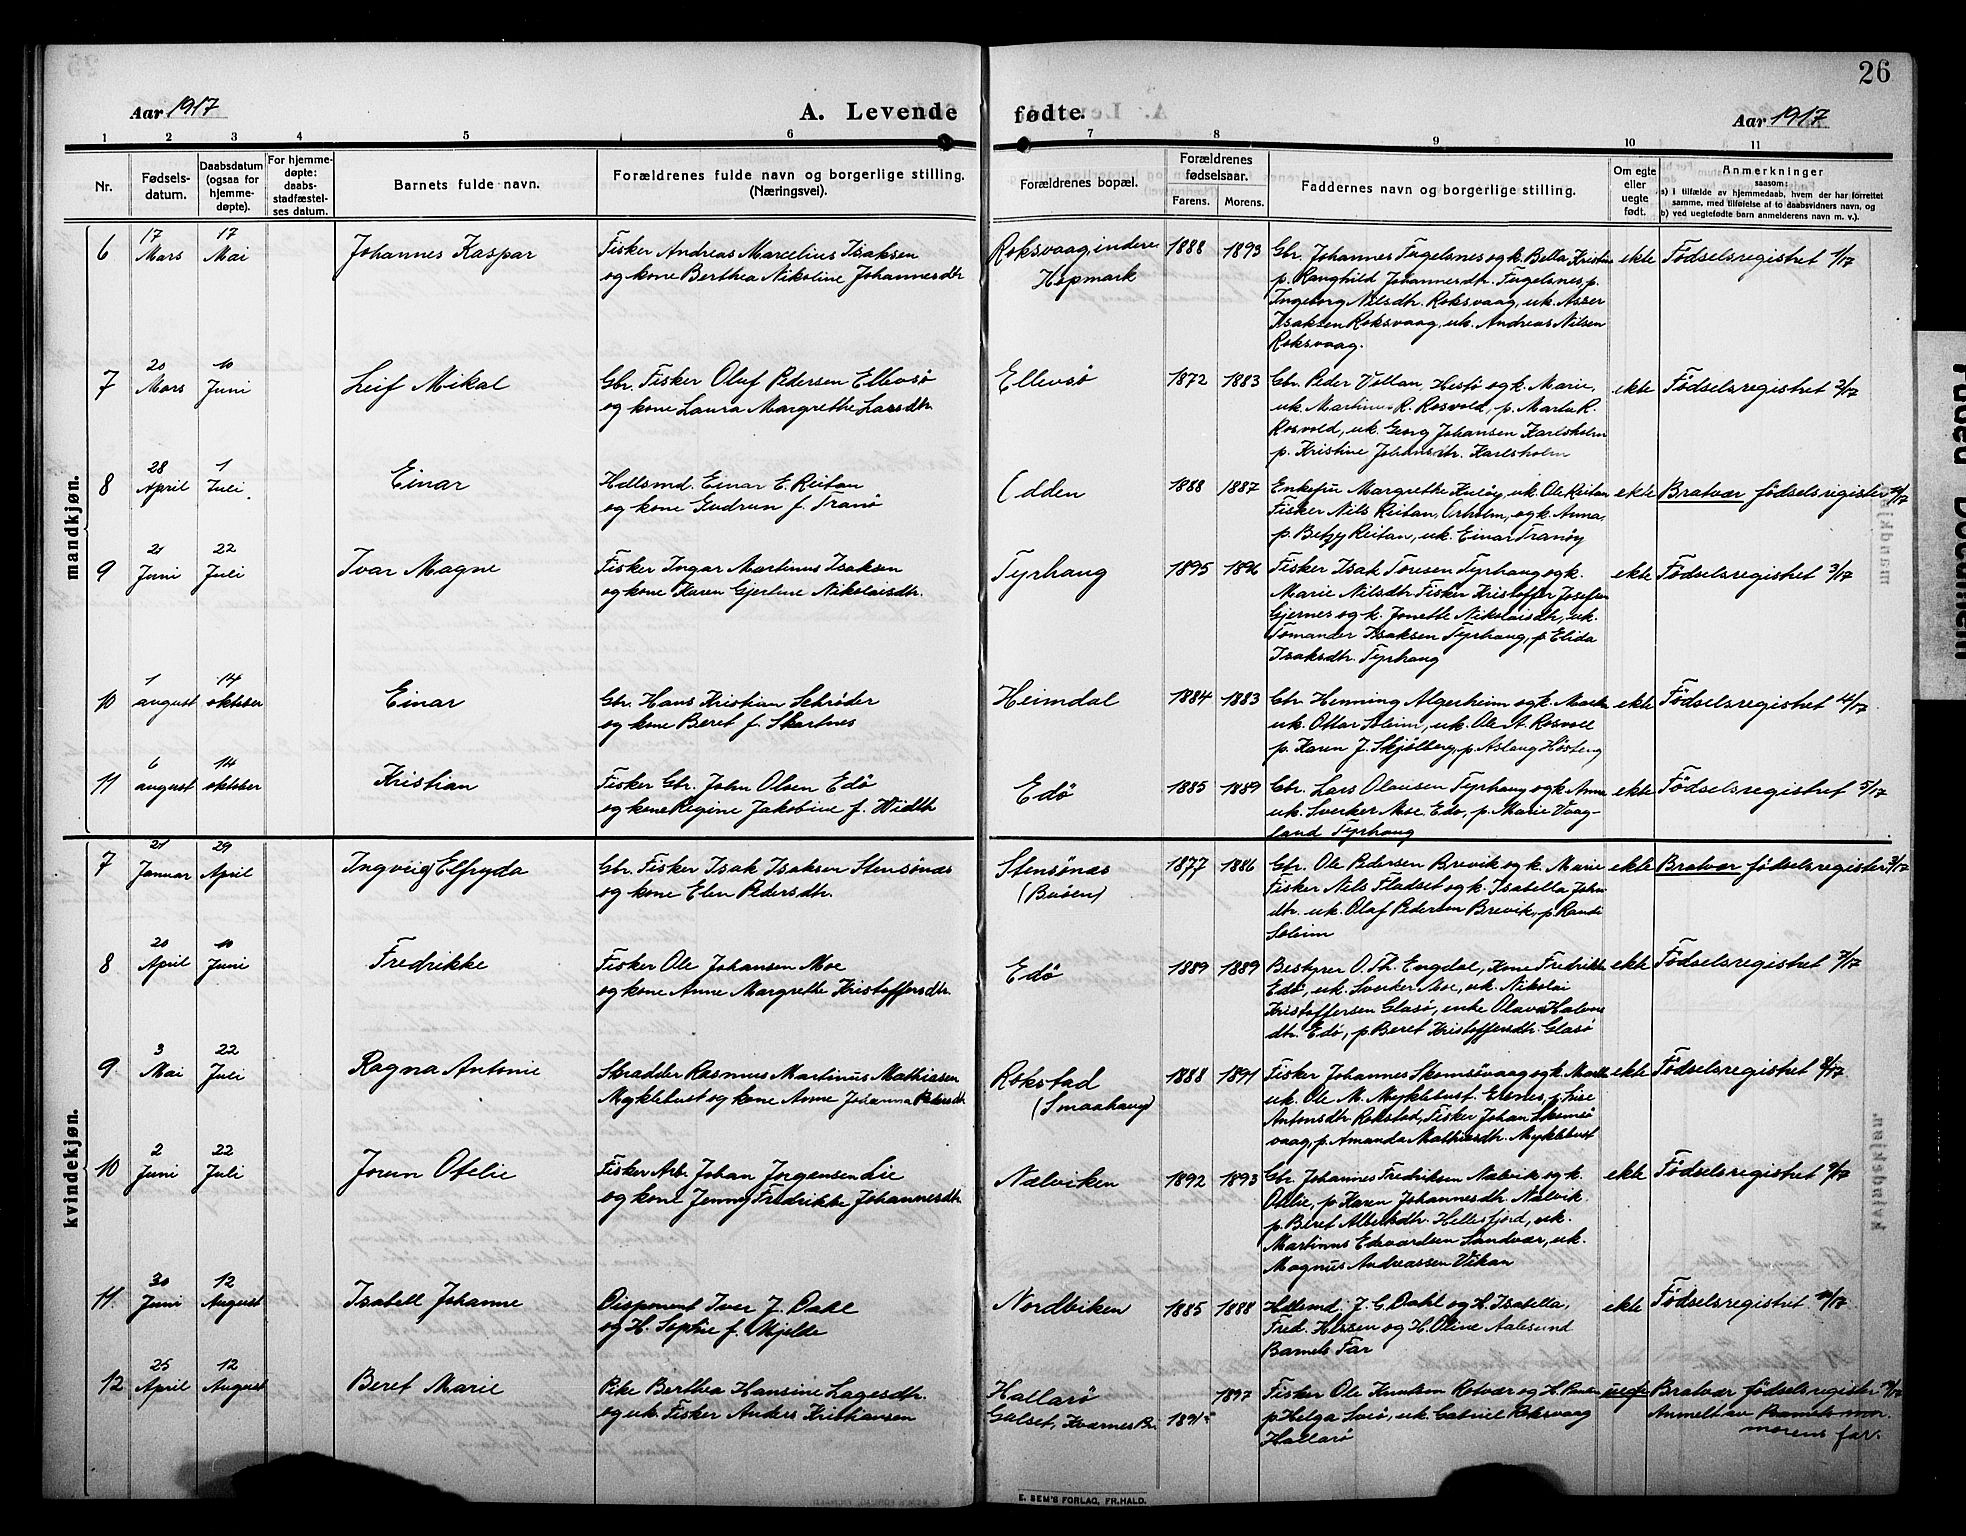 26
Aar 1917
A. Levende
fødte.
Aar 1917
1 2 3 4 5 6 7 8 9 10 11
Nr.
Fødsels-
datum.
Daabsdatum
(ogsaa for
hjemme-
døpte).
For hjemme-
døpte:
daabs-
stadfæstel-
ses datum.
Barnets fulde navn.
Forældrenes fulde navn og borgerlige stilling.
(Næringsvei).
Forældrenes bopæl.
Forældrenes
fødselsaar.
Farens. Morens.
Faddernes navn og borgerlige stilling.
Om egte
eller
uegte
født.
Anmerkninger
saasom:
a) i tilfælde av hjemmedaab, hvem der har forrettet
samme, med tilføielse af to daabsvidners navn, og
b) ved uegtefødte barn anmelderens navn m. v.).
mandkjøn.
6
17 Mars
17 Mai
Johannes Kaspar
Fisker Andreas Marcelius Isaksen
og kone Berthea Nikoline Johannesdtr
Roksvaag, indere
Hopmark
1888 1893
Gbr. Johannes Fugelsnes og k. Bella Kristine
p. Ranghild Johannesdtr. Fugelsnes, p.
Ingeborg Nilsdtr. Roksvaag, uk. Asser
Isaksen Roksvaag, uk. Andreas Nilsen
Roksvaag.
ekte
Födselsregistret 1/17
7
20 Mars
10 Juni
Leif Mikal
Gbr. Fisker Oluf Pedersen Ellevsö
og kone Laura Margrethe Larsdtr.
Ellevsö
1872 1883
Gbr. Peder Vollan, Hestö og k. Marie,
uk. Martinus R. Rosvold, p. Marta R.
Rosvold, uk. Georg Johansen Karlsholm
p. Kristine Johansdtr. Karlsholm
ekte
Födselsregistret 2/17
8
28 April
1 Juli.
Einar
Hdlsmd. Einar E. Reitan
og kone Gudrun f. Tranö
Odden
1888 1887
Enkefru Margrethe Kulöy, uk. Ole Reitan
Fisker Nils Reitan, Orholm, og k. Anna,
p. Betzy Reitan, uk. Einar Tranöy
ekte
Bratvær födselsregister
9
21 Juni
22 Juli
Ivar Magne
Fisker Ingar Martinus Isaksen
og kone Karen Gjertine Nikolaisdtr.
Tyrhaug
1895 1896
Fisker Isak Toresen Tyrhaug og k.
Marie Nilsdtr. Fisker Kristoffer Josefsen
Gjernes og k. Jonette Nikolaisdtr, uk.
Tomander Isaksen Tyrhaug, p. Elida
Isaksdtr. Tyrhaug
ekte
Födselsregistret 3/17
10
1 august
14 oktober
Einar
Gbr. Hans Kristian Schrøder
og kone Beret f. Skartnes
Heimdal
1884 1883
Gbr. Henning Algerheim og k. Marte
uk. Ottar Soleim, uk. Ole A. Rosvoll
p. Karen J. Skjölberg, p. Aslaug Hösteng
ekte
Födselsregistret 4/17
11
6 august
14 oktober
Kristian
Fisker Gbr. John Olsen Edö
og kone Regine Jakobine f. Width
Edö
1885 1889
Gbr. Lars Olausen Tyrhaug og k. Anne
uk. Sverker Moe. Edö, p. Marie Vaag-
land Tyrhaug
ekte
Födselsregistret 5/17
kvindekjøn.
7
21 Januar
29 April
Ingveig Elfryda
Gbr. Fisker Isak Isaksen Stensönæs
og kone Elen Pedersdtr.
Stensönæs
(Buöen)
1877 1886
Gbr. Ole Pedersen Brevik og k. Marie
Fisker Nils Fladset og k. Isabella John
dtr. uk. Olaf Pedersen Brevik, p. Randi
Soleim
ekte
Bratvær födselsregister 3/17
8
20 April
10 Juni
Fredrikke
Fisker Ole Johansen Moe
og kone Anne Margrethe Kristoffersdtr.
Edö
1889 1889
Bestyrer O. Th. Engdal, Kone Fredrikke
Edö, uk. Sverker Moe, uk. Nikolai
Kristoffersen Glasö, enke Olava Halvor
dtr. Edö, p. Beret Kristoffersdtr. Glasö
ekte
Födselsregistret 7/17
9
3 Mai
22 Juli
Ragna Antonie
Skrædder Rasmus Martinus Mathiasen
Myklebust og kone Anne Johanna Pedersdtr
Rokstad
(Smaahaug)
1888 1891
Fisker Johannes Skomsövaag og k. Marthe
uk. Ole M. Myklebust. Elsnes, p. Lise
Antonsdtr Rokstad, Fisker Johan Skomsö
vaag, p. Amanda Mathiesdtr. Myklebust
ekte
Födselsregistret 8/17
10
2 Juni
22 Juli
Jorun Otelie
Fisker Arb. Johan Jorgensen Lie
og kone Jenny Fredrikke Johannesdtr.
Nælviken
1892 1893
Gbr. Johannes Fredriksen Nælvik og k.
Otelie, p. Karen Johannesdtr. Nælvik.
p. Beret Albertsdtr. Hellesfjord, uk.
Martinus Edevardsen Sandvær, uk.
Magnus Andreassen Vikan
ekte
Födselsregistret 9/17
11.
30 Juni
12 August
Isabell Johanne
Disponent Iver J. Dahl
og H. Sophie f. Mjelde
Nordviken
1885 1888
Hdlsmd. J. G. Dahl og H. Isabella,
Fred. Hessen og H. Oline Aalesund
Barnets Far
ekte
Födselsregistret 10/17
12
25 April
12 August
Beret Marie
Pike Berthea Hansine Lagesdtr.
og uk. Fisker Anders Kristiansen
Hallarö
Galset, Kvarnes Pr.
1891 1897
Fisker Ole Knutsen Rotvær og H.
p. Helga Sveö, uk. Gabriel Roksvaag
Hallarö
uegte
Bratvær födselsregister
Anmelt av Barnets mor.
morens far.
E. SEM'S FORLAG, FR.HALD.